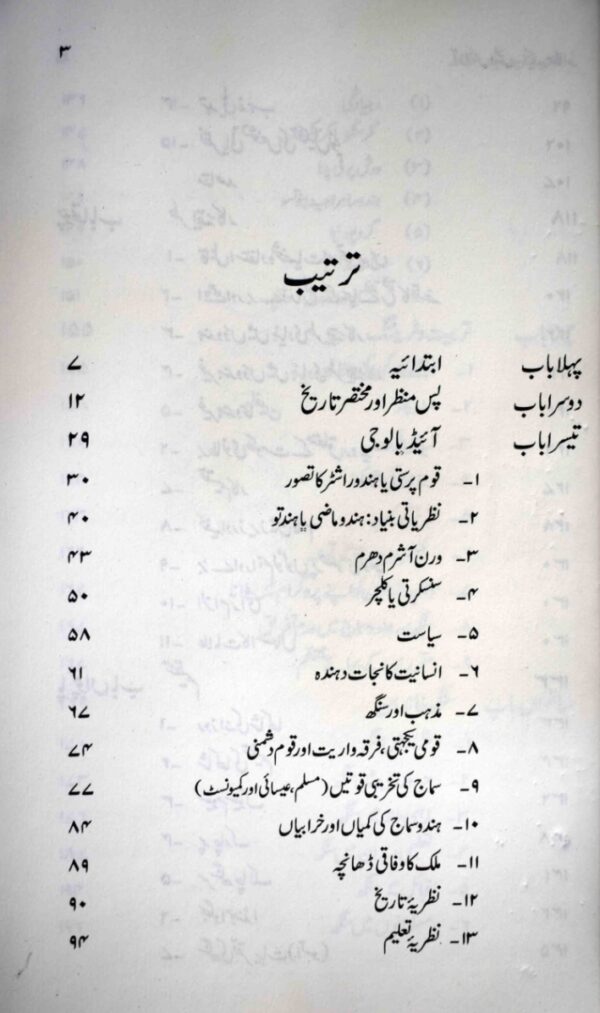 ۳
ترتیب
پہلا باب ابتدائیہ ۷
دوسرا باب پس منظر اور مختصر تاریخ ۱۲
تیسرا باب آئیڈیالوجی ۲۹
۱۔ قوم پرستی یا ہندو راشٹر کا تصور ۳۰
۲۔ نظریاتی بنیاد: ہندو ماضی یا ہندتو ۴۰
۳۔ ورن آشرم دھرم ۴۳
۴۔ سنسکرتی یا کلچر ۵۰
۵۔ سیاست ۵۸
۶۔ انسانیت کا نجات دہندہ ۶۱
۷۔ مذہب اور سنگھ ۶۷
۸۔ قومی یکجہتی، فرقہ واریت اور قوم دشمنی ۷۴
۹۔ سماج کی تخریبی قوتیں (مسلم، عیسائی اور کمیونسٹ) ۷۷
۱۰۔ ہندو سماج کی کمیاں اور خرابیاں ۸۴
۱۱۔ ملک کا وفاقی ڈھانچہ ۸۹
۱۲۔ نظریۂ تاریخ ۹۰
۱۳۔ نظریۂ تعلیم ۹۴